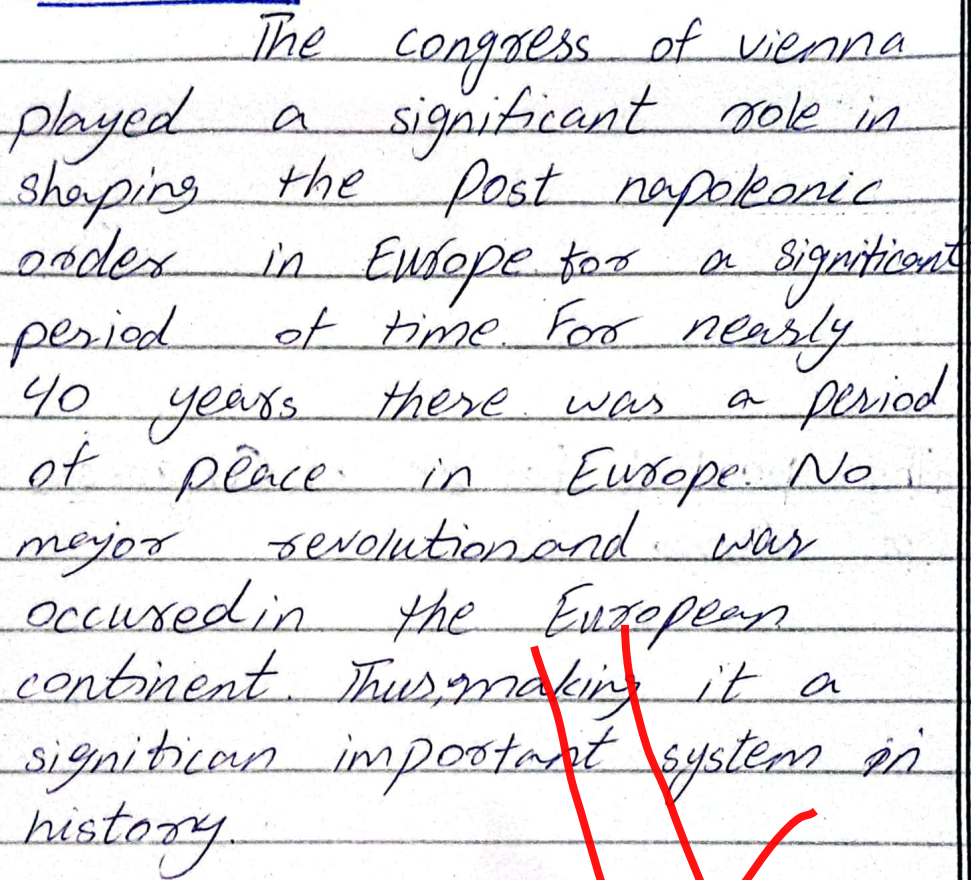 The congress of vienna
played a significant role in
shaping the Post napoleonic
order in Europe for a significant
period of time. For nearly
40 years there was a period
of peace in Europe. No
major revolution and war
occured in the European
continent. Thus, making it a
significan important system in
history.